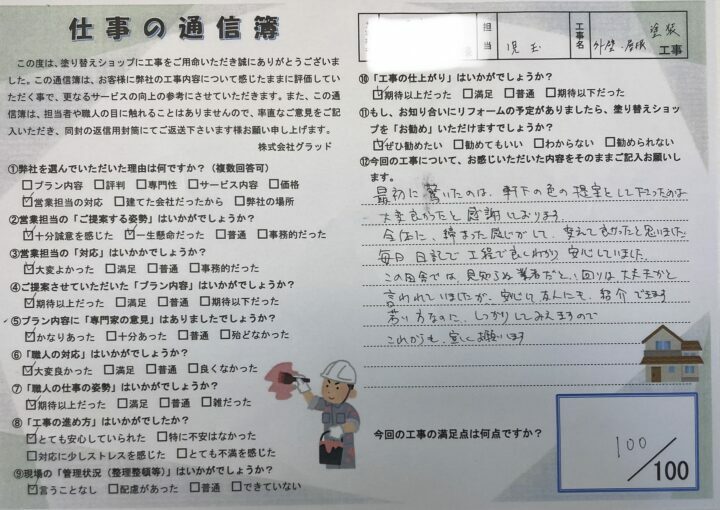 仕事の通信簿
この度は、塗り替えショップに工事をご用命いただき誠にありがとうございま
した。この通信簿は、お客様に弊社の工事内容について感じたままに評価してい
ただく事で、更なるサービスの向上の参考にさせていただきます。また、この通
信簿は、担当者や職人の目に触れることはありませんので、率直なご意見をご記
入いただき、同封の返信用封筒にてご返送下さいます様お願い申し上げます。
株式会社グラッド
①弊社を選んでいただいた理由は何ですか?(複数回答可)
□プラン内容 □評判 □専門性 □サービス内容 □価格
☑営業担当の対応 □建てた会社だったから □弊社の場所
②営業担当の「ご提案する姿勢」はいかがでしょうか?
☑十分誠意を感じた ☑一生懸命だった □普通 □事務的だった
③営業担当の「対応」はいかがでしょうか?
☑大変よかった □満足 □普通 □事務的だった
④ご提案させていただいた「プラン内容」はいかがでしょうか?
☑期待以上だった □満足 □普通 □期待以下だった
⑤プラン内容に「専門家の意見」はありましたでしょうか?
☑かなりあった □十分あった □普通 □殆どなかった
⑥「職人の対応」はいかがでしょうか?
☑大変良かった □満足 □普通 □良くなかった
⑦「職人の仕事の姿勢」はいかがでしょうか?
☑期待以上だった □満足 □普通 □雑だった
⑧「工事の進め方」はいかがでしたか?
☑とても安心していられた □特に不安はなかった
□対応に少しストレスを感じた □とても不満を感じた
⑨現場の「管理状況(整理整頓等)」はいかがでしょうか?
☑言うことなし □配慮があった □普通 □できていない
担当 児玉 工事名 外壁・屋根塗装工事
⑩「工事の仕上がり」はいかがでしょうか?
☑期待以上だった □満足 □普通 □期待以下だった
⑪もし、お知り合いにリフォームの予定がありましたら、塗り替えショッ
プを「お勧め」いただけますでしょうか?
☑ぜひ勧めたい □勧めてもいい □わからない □勧められない
⑫今回の工事について、お感じいただいた内容をそのままご記入お願いし
ます。
最初に驚いたのは、軒下の色の提案をして下さったのは
大変良かったと感謝しております。
全体に、締まった感じがして、変えて良かったと思いました
毎日日記で工程で良くわかり安心していました。
この田舎では見知らぬ業者だと、回りは大丈夫かと
言われていましたが、安心して友人にも、紹介できます
若い方なのに、しっかりしてみえますので
これからも、宜しくお願います
今回の工事の満足点は何点ですか?
100/100